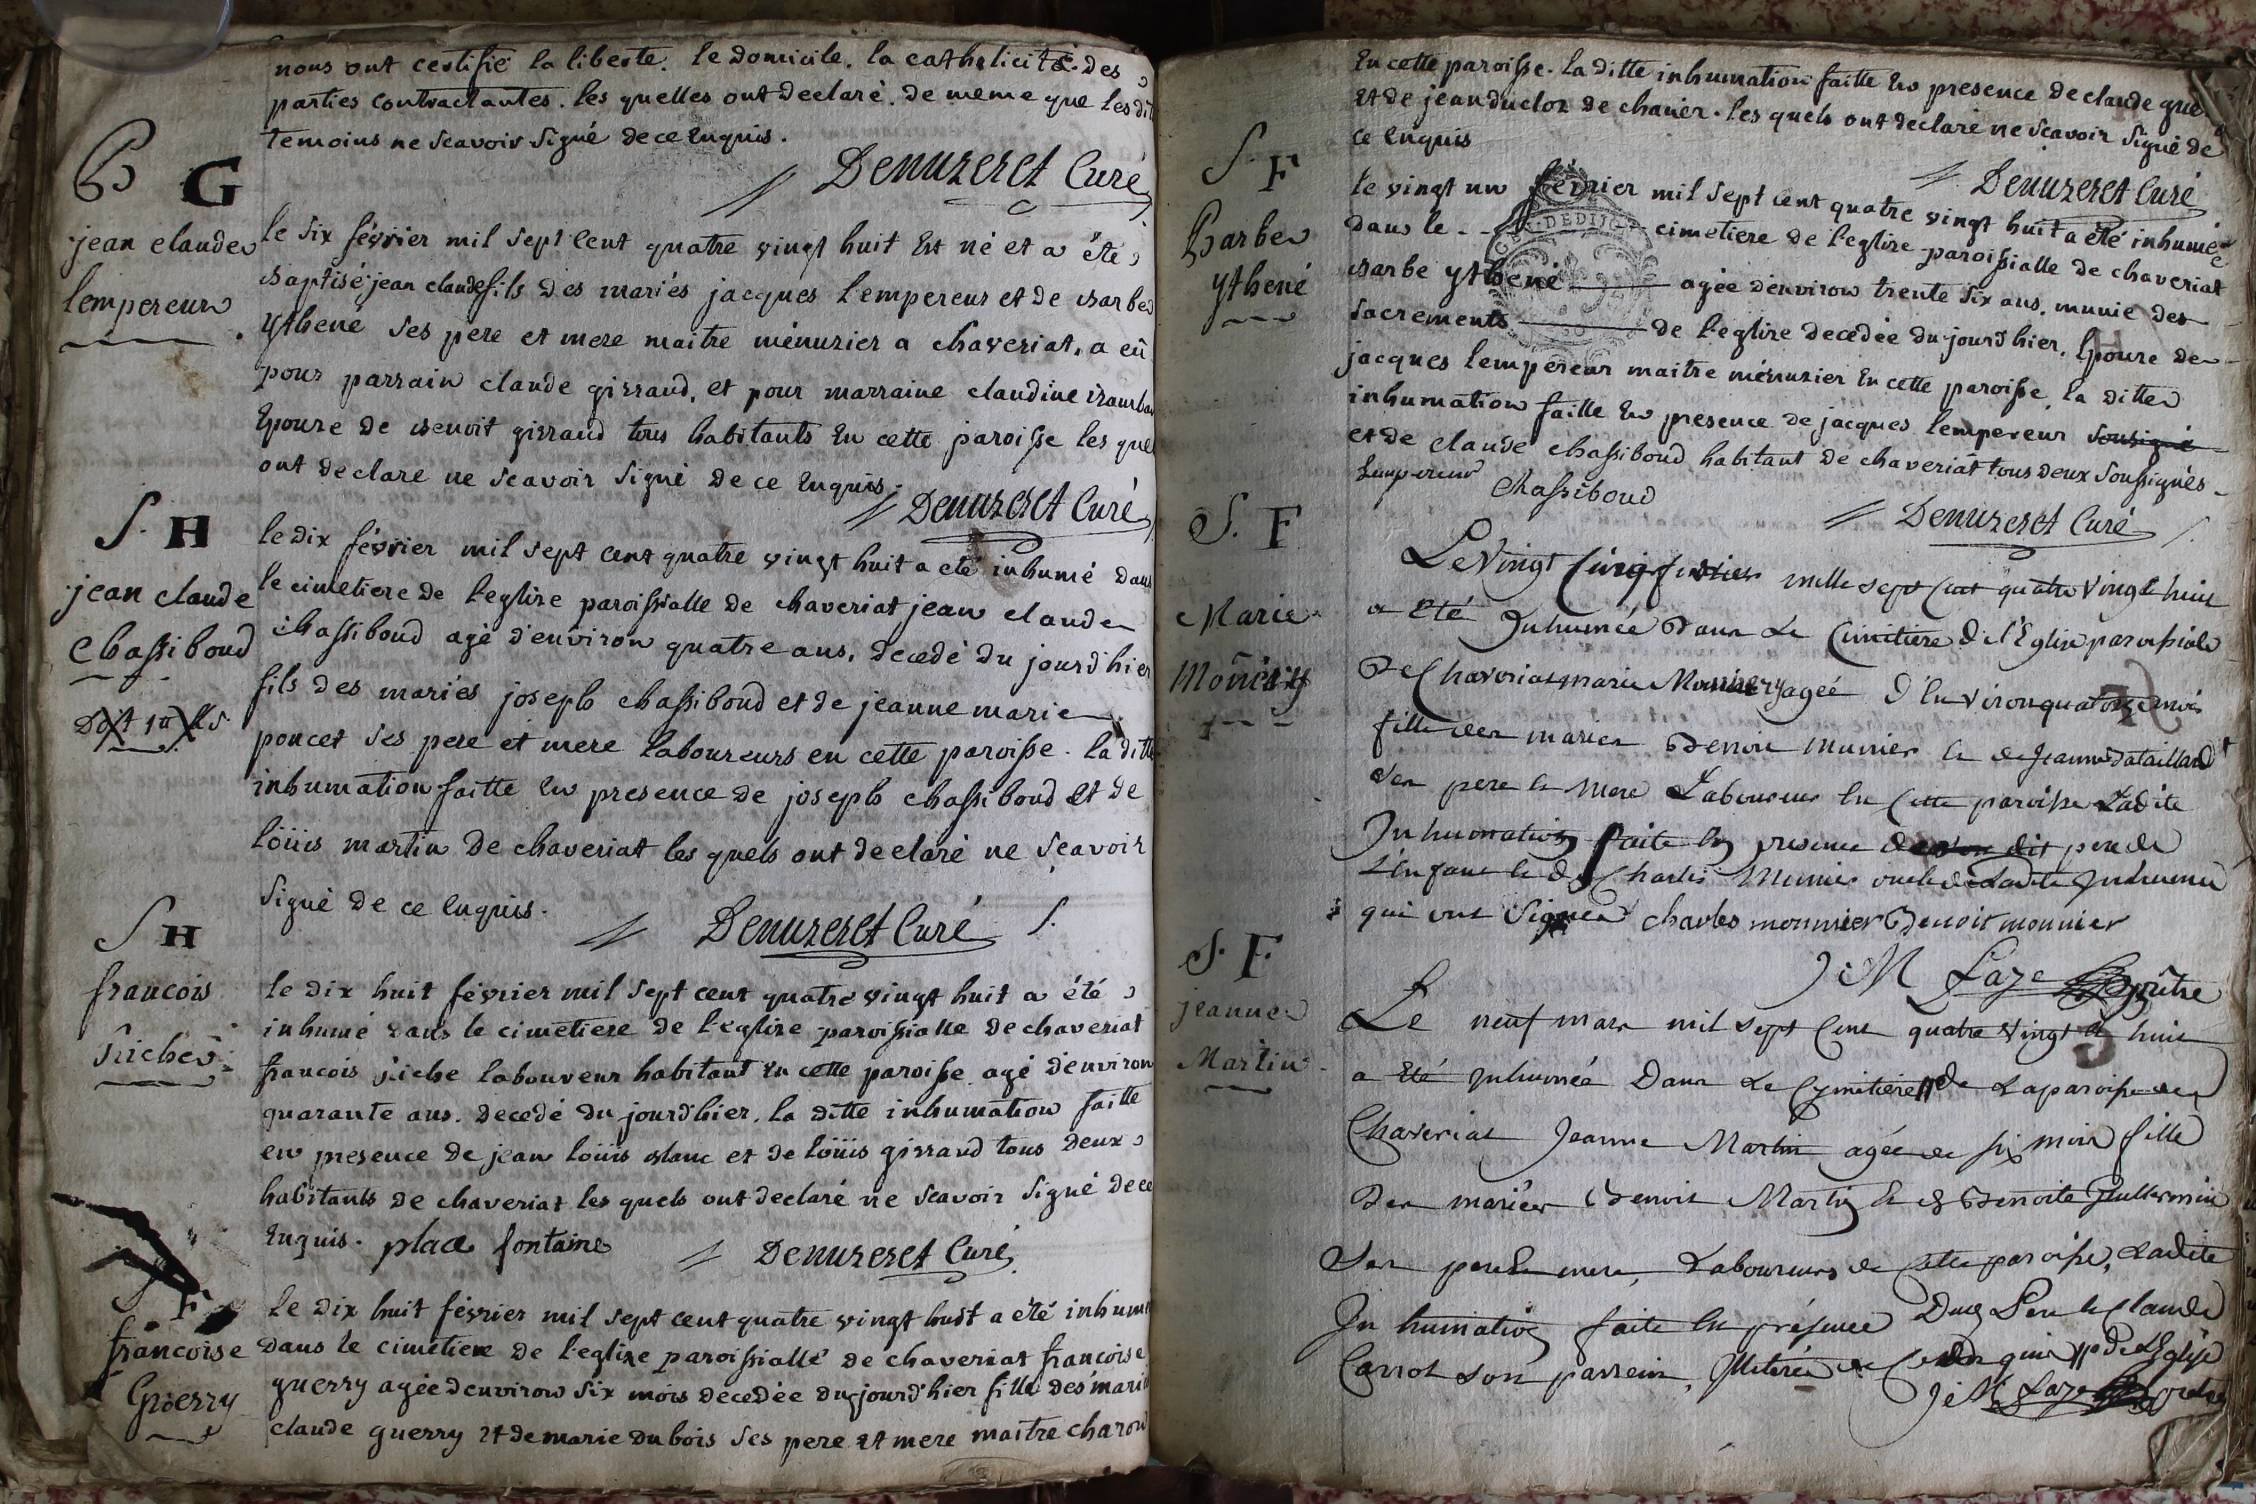 nous ont certifié la liberte. le domicile. la catholicité. des
parties contractantes. les quelles ont declaré. de meme que les dit
temoins ne scavoir signé de ce enquis.
Denuzeret Curé
B G
jean claude
lempereur
le six février mil sept cent quatre vingt huit est né et a été
baptisé jean claude fils des mariés jacques lempereur et de barbe
ythené ses pere et mere maitre ménuzier a chaveriat, a eû
pour parrain claude girraud, et pour marraine claudine
epouze de benoit girraud tous habitants en cette paroisse les que
ont declare ne scavoir signé de ce enquis.
Denuzeret Curé
S. H
jean claude
Chassiboud
le dix février mil sept cent quatre vingt huit a eté inhumé dans
le cimetiere de l'eglise paroissialle de chaveriat jean claude
chassiboud agé d'environ quatre ans, decedé du jourd'hier
fils des mariés joseph chassiboud et de jeanne marie
poncet ses pere et mere laboureurs en cette paroisse. la ditte
inhumation faitte en presence de joseph chassiboud et de
loüis martin de chaveriat les quels ont declaré ne scavoir
signé de ce enquis.
Denuzeret Curé
S H
francois
le dix huit février mil sept cent quatre vingt huit a été
inhumé dans le cimetiere de l'eglise paroissialle de chaveriat
francois laboureur habitant en cette paroisse agé d'environ
quarante ans. decedé du jourd'hier. la ditte inhumation faitte
en presence de jean loüis blanc et de loüis girraud tous deux
habitants de chaveriat les quels ont declaré ne scavoir signé de ce
enquis. place fontaine
Denuzeret Curé
F
francoise
Guerry
le dix huit février mil sept cent quatre vingt huit a été inhumé
dans le cimetiere de l'eglize paroissialle de chaveriat francoise
guerry agée d'environ six mois decedée du jourd'hier fille des marié
claude guerry et de marie dubois ses pere et mere maitre charon
en cette paroisse. la ditte inhumation faitte en presence de claude gue
et de jean duclos de chanér. les quels ont declaré ne scavoir signé de
ce enquis
Denuzeret Curé
S. F
Barbe
ythené
le vingt un février mil sept cent quatre vingt huit a été inhumée
dans le cimetiere de l'eglise paroissialle de chaveriat
barbe ythené agée d'environ trente six ans, munie des
sacrements de l'eglise decedée du jourd'hier, epouze de
jacques lempereur maitre ménuzier en cette paroisse, la ditte
inhumation faitte en presence de jacques lempereur sousigné
et de claude chassiboud habitant de chaveriat tous deux soussignés
Lempereur Chassiboud
Denuzeret Curé
S. F
Marie
Le vingt cinq fevrier mille sept cent quatre vingt huit
a eté Inhumée dans le Cimetière de l'Eglise paroissiale
de Chaveriat marie agée d'environ quatorze mois
fille des mariés Benoit munier et de Jeanne
ses pere et mere Laboureur en cette paroisse Ladite
Inhumation faite en presence du pere de
L'enfant et de Charles Munier oncle de Ladite Inhumée
qui ont signés charles monnier Benoit monnier
J: M Laze prêtre
S. F
jeanne
Martin
Le neuf mars mil sept cent quatre vingt et huit
a eté inhumée Dans Le Cymitière de La paroisse de
Chaveriat Jeanne Martin agée de six mois fille
des mariés Benoit Martin et de Benoite Guillermin
ses pere et mere, Laboureurs de cette paroisse, Ladite
Inhumation faite en présence Dudt Pere et Claude
Carrot son parrein,
J: M Laze prêtre